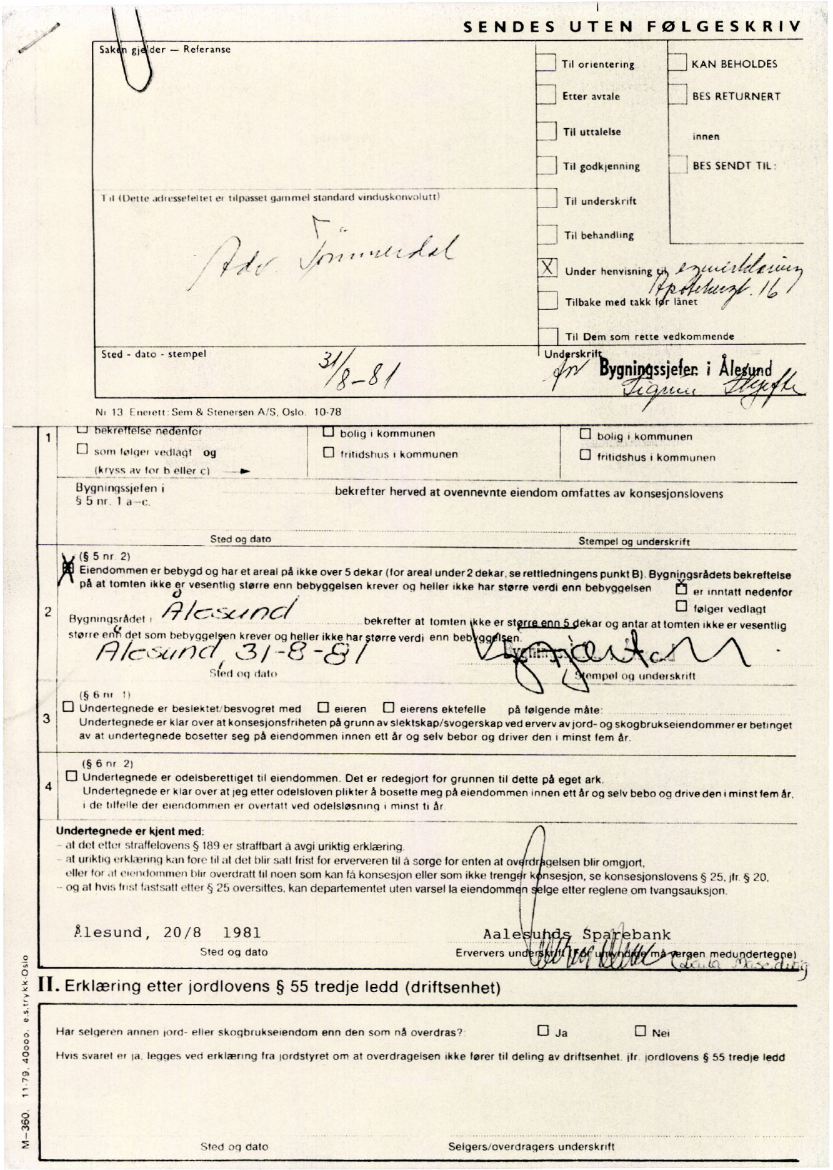 SENDES UTEN FØLGESKRIV
Saken gjelder — Referanse
Til orientering
KAN BEHOLDES
Etter avtale
BES RETURNERT
Til uttalelse
innen
Til godkjenning
BES SENDT TIL:
Til (Dette adressefeltet er tilpasset gammel standard vinduskonvolutt)
Til underskrift
Til behandling
Adv Tømmerdal
X Under henvisning til egenerklæring
Apotekergt. 16
Tilbake med takk for lånet
Til Dem som rette vedkommende
Sted - dato - stempel
31/8-81
Underskrift
for Bygningssjefen i Ålesund
Sigrun
Nr 13 Enerett: Sem & Stenersen A/S, Oslo. 10-78
1
bekreftelse nedenfor
bolig i kommunen
bolig i kommunen
som følger vedlagt og
fritidshus i kommunen
fritidshus i kommunen
(kryss av for b eller c)
Bygningssjefen i
bekrefter herved at ovennevnte eiendom omfattes av konsesjonslovens
§ 5 nr. 1 a–c.
Sted og dato
Stempel og underskrift
2
(§ 5 nr 2)
X Eiendommen er bebygd og har et areal på ikke over 5 dekar (for areal under 2 dekar, se rettledningens punkt B). Bygningsrådets bekreftelse
på at tomten ikke er vesentlig større enn bebyggelsen krever og heller ikke har større verdi enn bebyggelsen
X er inntatt nedenfor
følger vedlagt
Bygningsrådet i Ålesund bekrefter at tomten ikke er større enn 5 dekar og antar at tomten ikke er vesentlig
større enn det som bebyggelsen krever og heller ikke har større verdi enn bebyggelsen.
Ålesund, 31-8-81
Sted og dato
Stempel og underskrift
3
(§ 6 nr 1)
Undertegnede er beslektet/besvogret med
eieren
eierens ektefelle
på følgende måte:
Undertegnede er klar over at konsesjonsfriheten på grunn av slektskap/svogerskap ved erverv av jord- og skogbrukseiendommer er betinget
av at undertegnede bosetter seg på eiendommen innen ett år og selv bebor og driver den i minst fem år.
4
(§ 6 nr 2)
Undertegnede er odelsberettiget til eiendommen. Det er redegjort for grunnen til dette på eget ark.
Undertegnede er klar over at jeg etter odelsloven plikter å bosette meg på eiendommen innen ett år og selv bebo og drive den i minst fem år,
i de tilfelle der eiendommen er overtatt ved odelsløsning i minst ti år
Undertegnede er kjent med:
– at det etter straffelovens § 189 er straffbart å avgi uriktig erklæring.
– at uriktig erklæring kan føre til at det blir satt frist for erververen til å sørge for enten at overdragelsen blir omgjort,
eller for at eiendommen blir overdratt til noen som kan få konsesjon eller som ikke trenger konsesjon, se konsesjonslovens § 25, jfr. § 20,
– og at hvis frist fastsatt etter § 25 oversittes, kan departementet uten varsel la eiendommen selge etter reglene om tvangsauksjon.
Ålesund, 20/8 1981
Aalesunds Sparebank
Sted og dato
Erververs underskrift (For umyndige må vergen medundertegne)
II. Erklæring etter jordlovens § 55 tredje ledd (driftsenhet)
Har selgeren annen jord- eller skogbrukseiendom enn den som nå overdras?:
Ja
Nei
Hvis svaret er ja, legges ved erklæring fra jordstyret om at overdragelsen ikke fører til deling av driftsenhet, jfr. jordlovens § 55 tredje ledd
Sted og dato
Selgers/overdragers underskrift
M–360. 11-79. 40000. e.s.trykk-Oslo